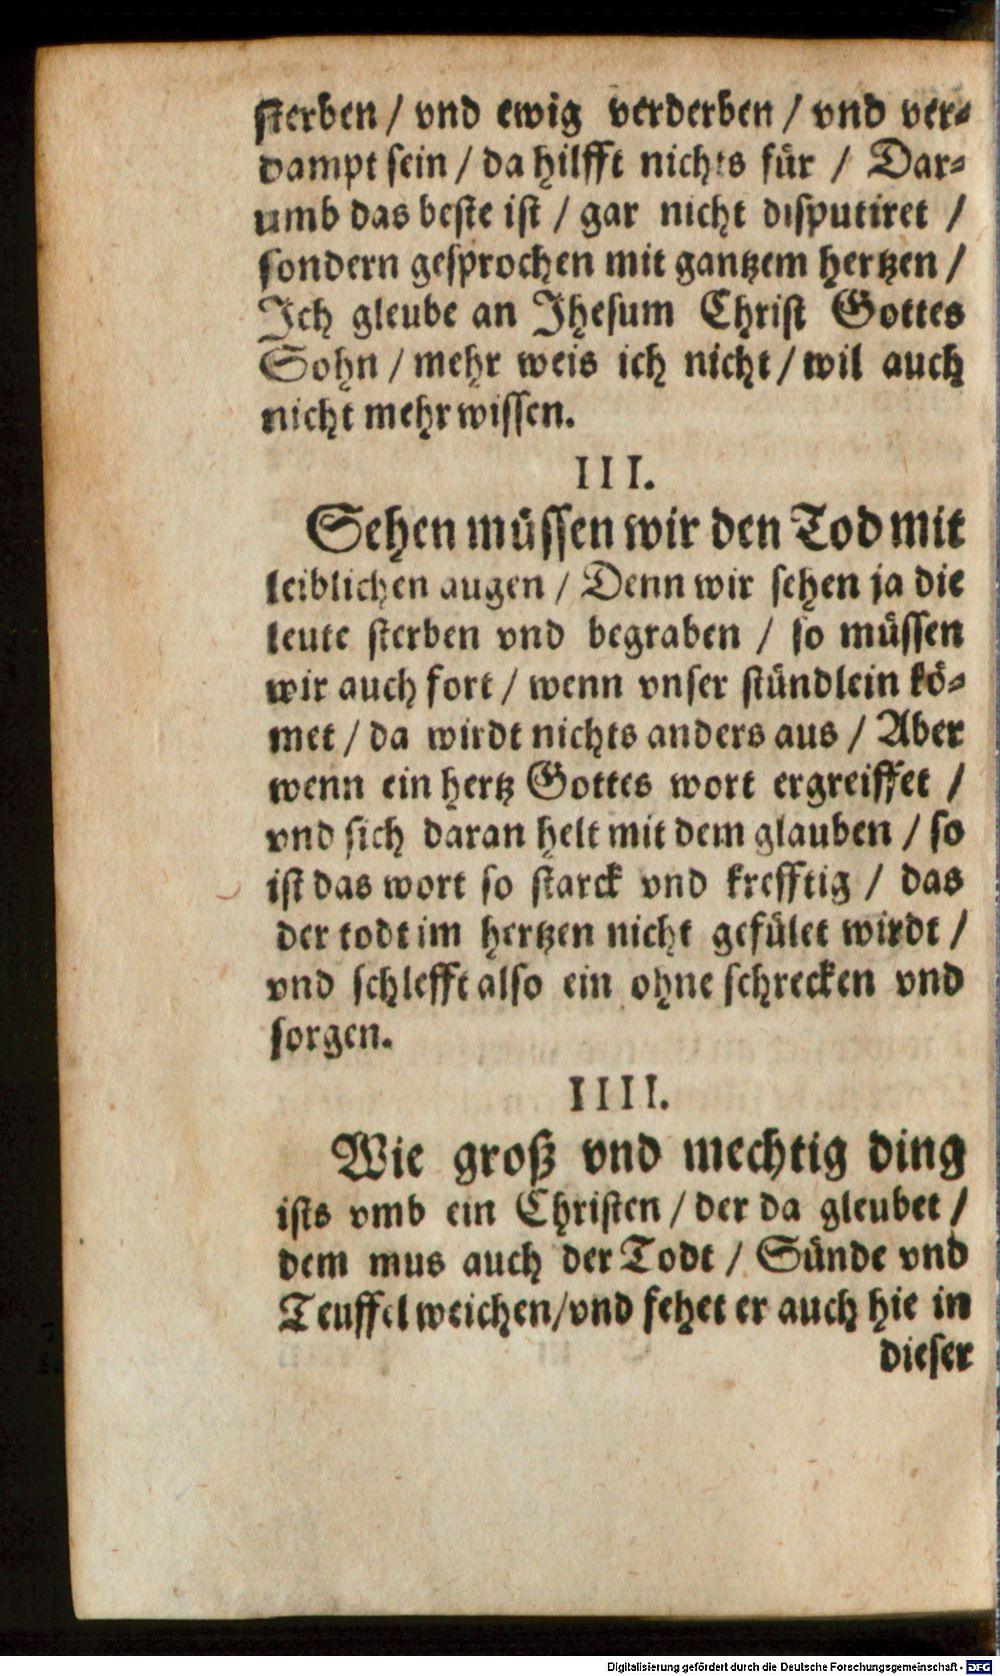 sterben / vnd ewig verderben / vnd ver⸗
dampt sein / da hilfft nichts für / Dar⸗
umb das beste ist / gar nicht disputiret /
sondern gesprochen mit gantzem hertzen /
Ich gleube an Jhesum Christ Gottes
Sohn / mehr weis ich nicht / wil auch
nicht mehr wissen.
III.
Sehen müssen wir den Tod mit
leiblichen augen / Denn wir sehen ja die
leute sterben vnd begraben / so müssen
wir auch fort / wenn vnser stündlein kö⸗
met / da wirdt nichts anders aus / Aber
wenn ein hertz Gottes wort ergreiffet /
vnd sich daran helt mit dem glauben / so
ist das wort so starck vnd krefftig / das
der todt im hertzen nicht gefület wirdt /
vnd schlefft also ein ohne schrecken vnd
sorgen.
IIII.
Wie groß vnd mechtig ding
ists vmb ein Christen / der da gleubet /
dem mus auch der Todt / Sünde vnd
Teuffel weichen / vnd fehet er auch hie in
dieser
Digitalisierung gefördert durch die Deutsche Forschungsgemeinschaft - DFG